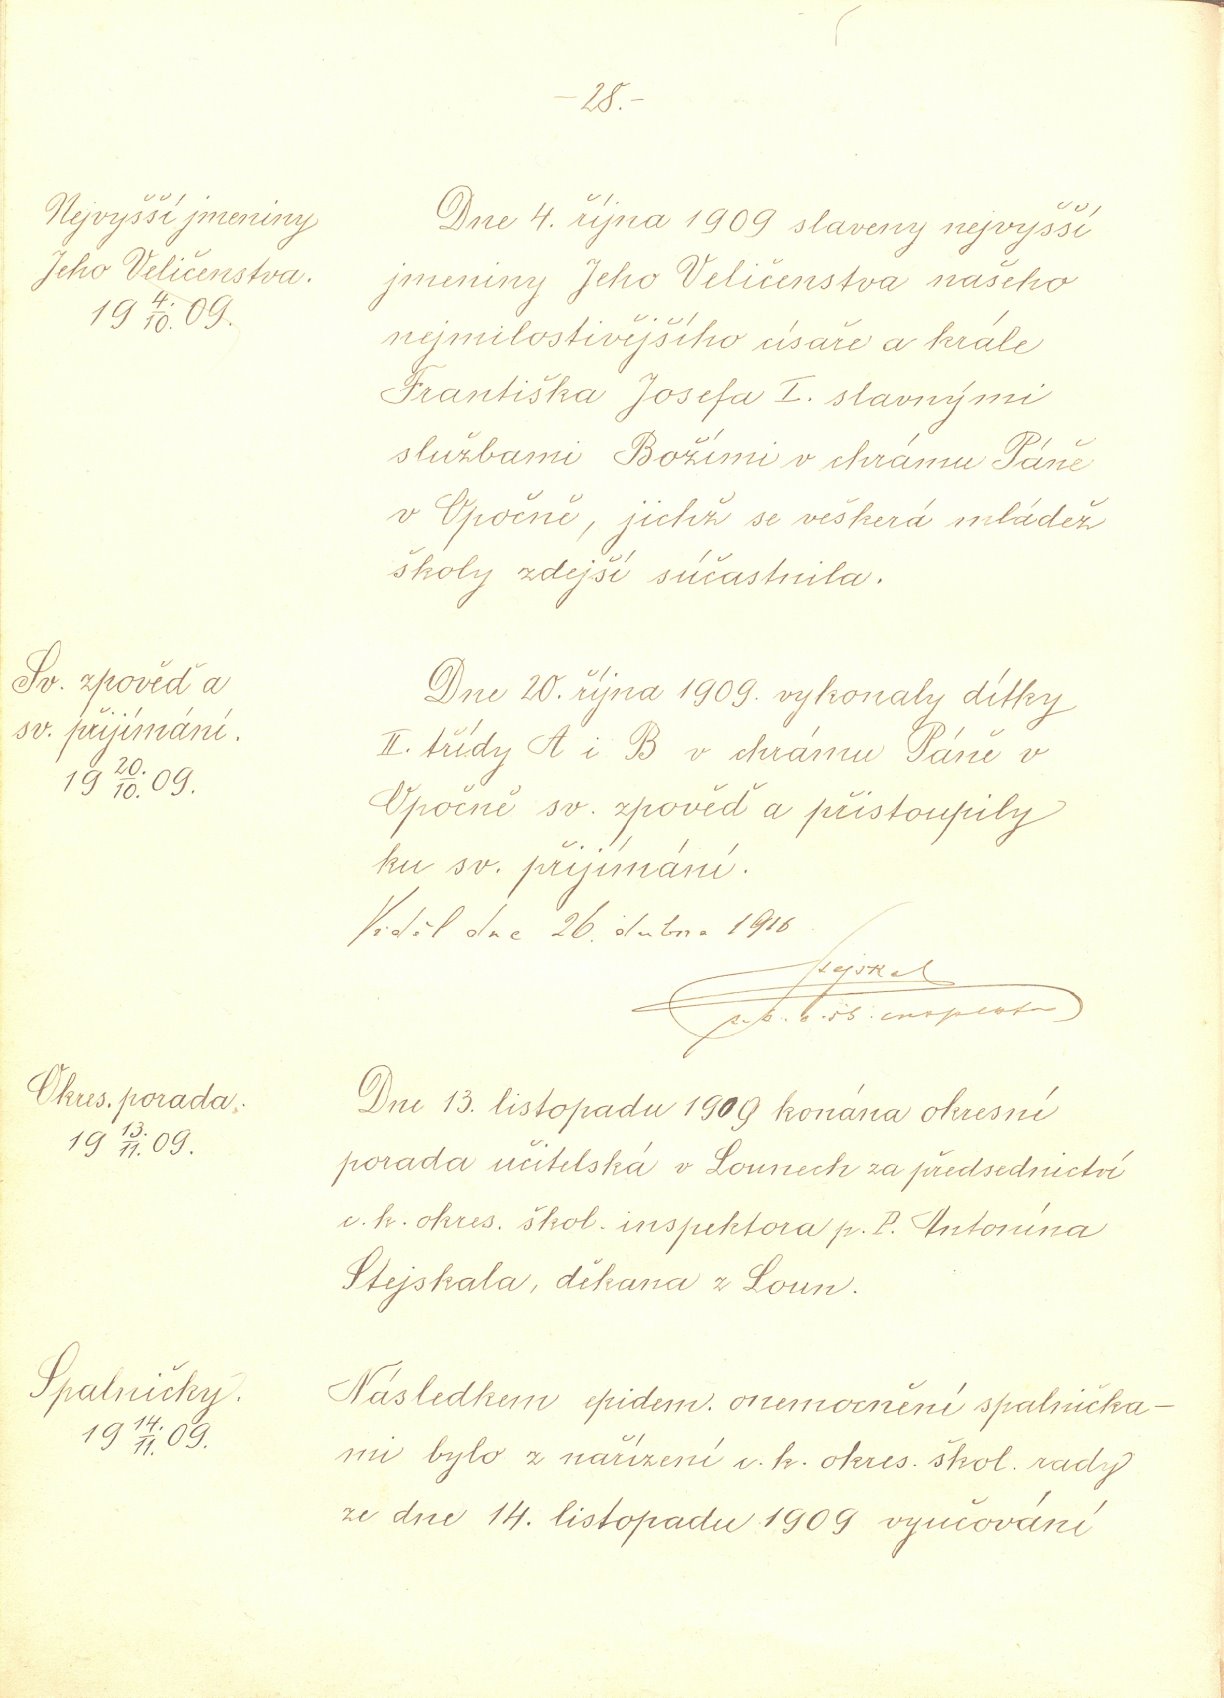 - 28. -
Nejvyšší jmeniny
Jeho Veličenstva.
19 4./10. 09.
Dne 4. října 1909 slaveny nejvyšší
jmeniny Jeho Veličenstva našeho
nejmilostivějšího císaře a krále
Františka Josefa I. slavnými
službami Božími v chrámu Páně
v Opočně, jichž se veškerá mládež
školy zdejší súčastnila.
Sv. zpověď a
sv. přijímání.
19 20./10. 09.
Dne 20. října 1909. vykonaly dítky
II. třídy A i B v chrámu Páně v
Opočně sv. zpověď a přistoupily
ku sv. přijímání.
Viděl dne 26. dubna 1910
Stejskal
inspektor
Okres. porada.
19 13./11. 09.
Dne 13. listopadu 1909 konána okresní
porada učitelská v Lounech za předsednictví
c. k. okres. škol. inspektora p. P. Antonína
Stejskala, děkana z Loun.
Spalničky.
19 14./11. 09.
Následkem epidem. onemocnění spalnička-
mi bylo z nařízení c. k. okres. škol. rady
ze dne 14. listopadu 1909 vyučování